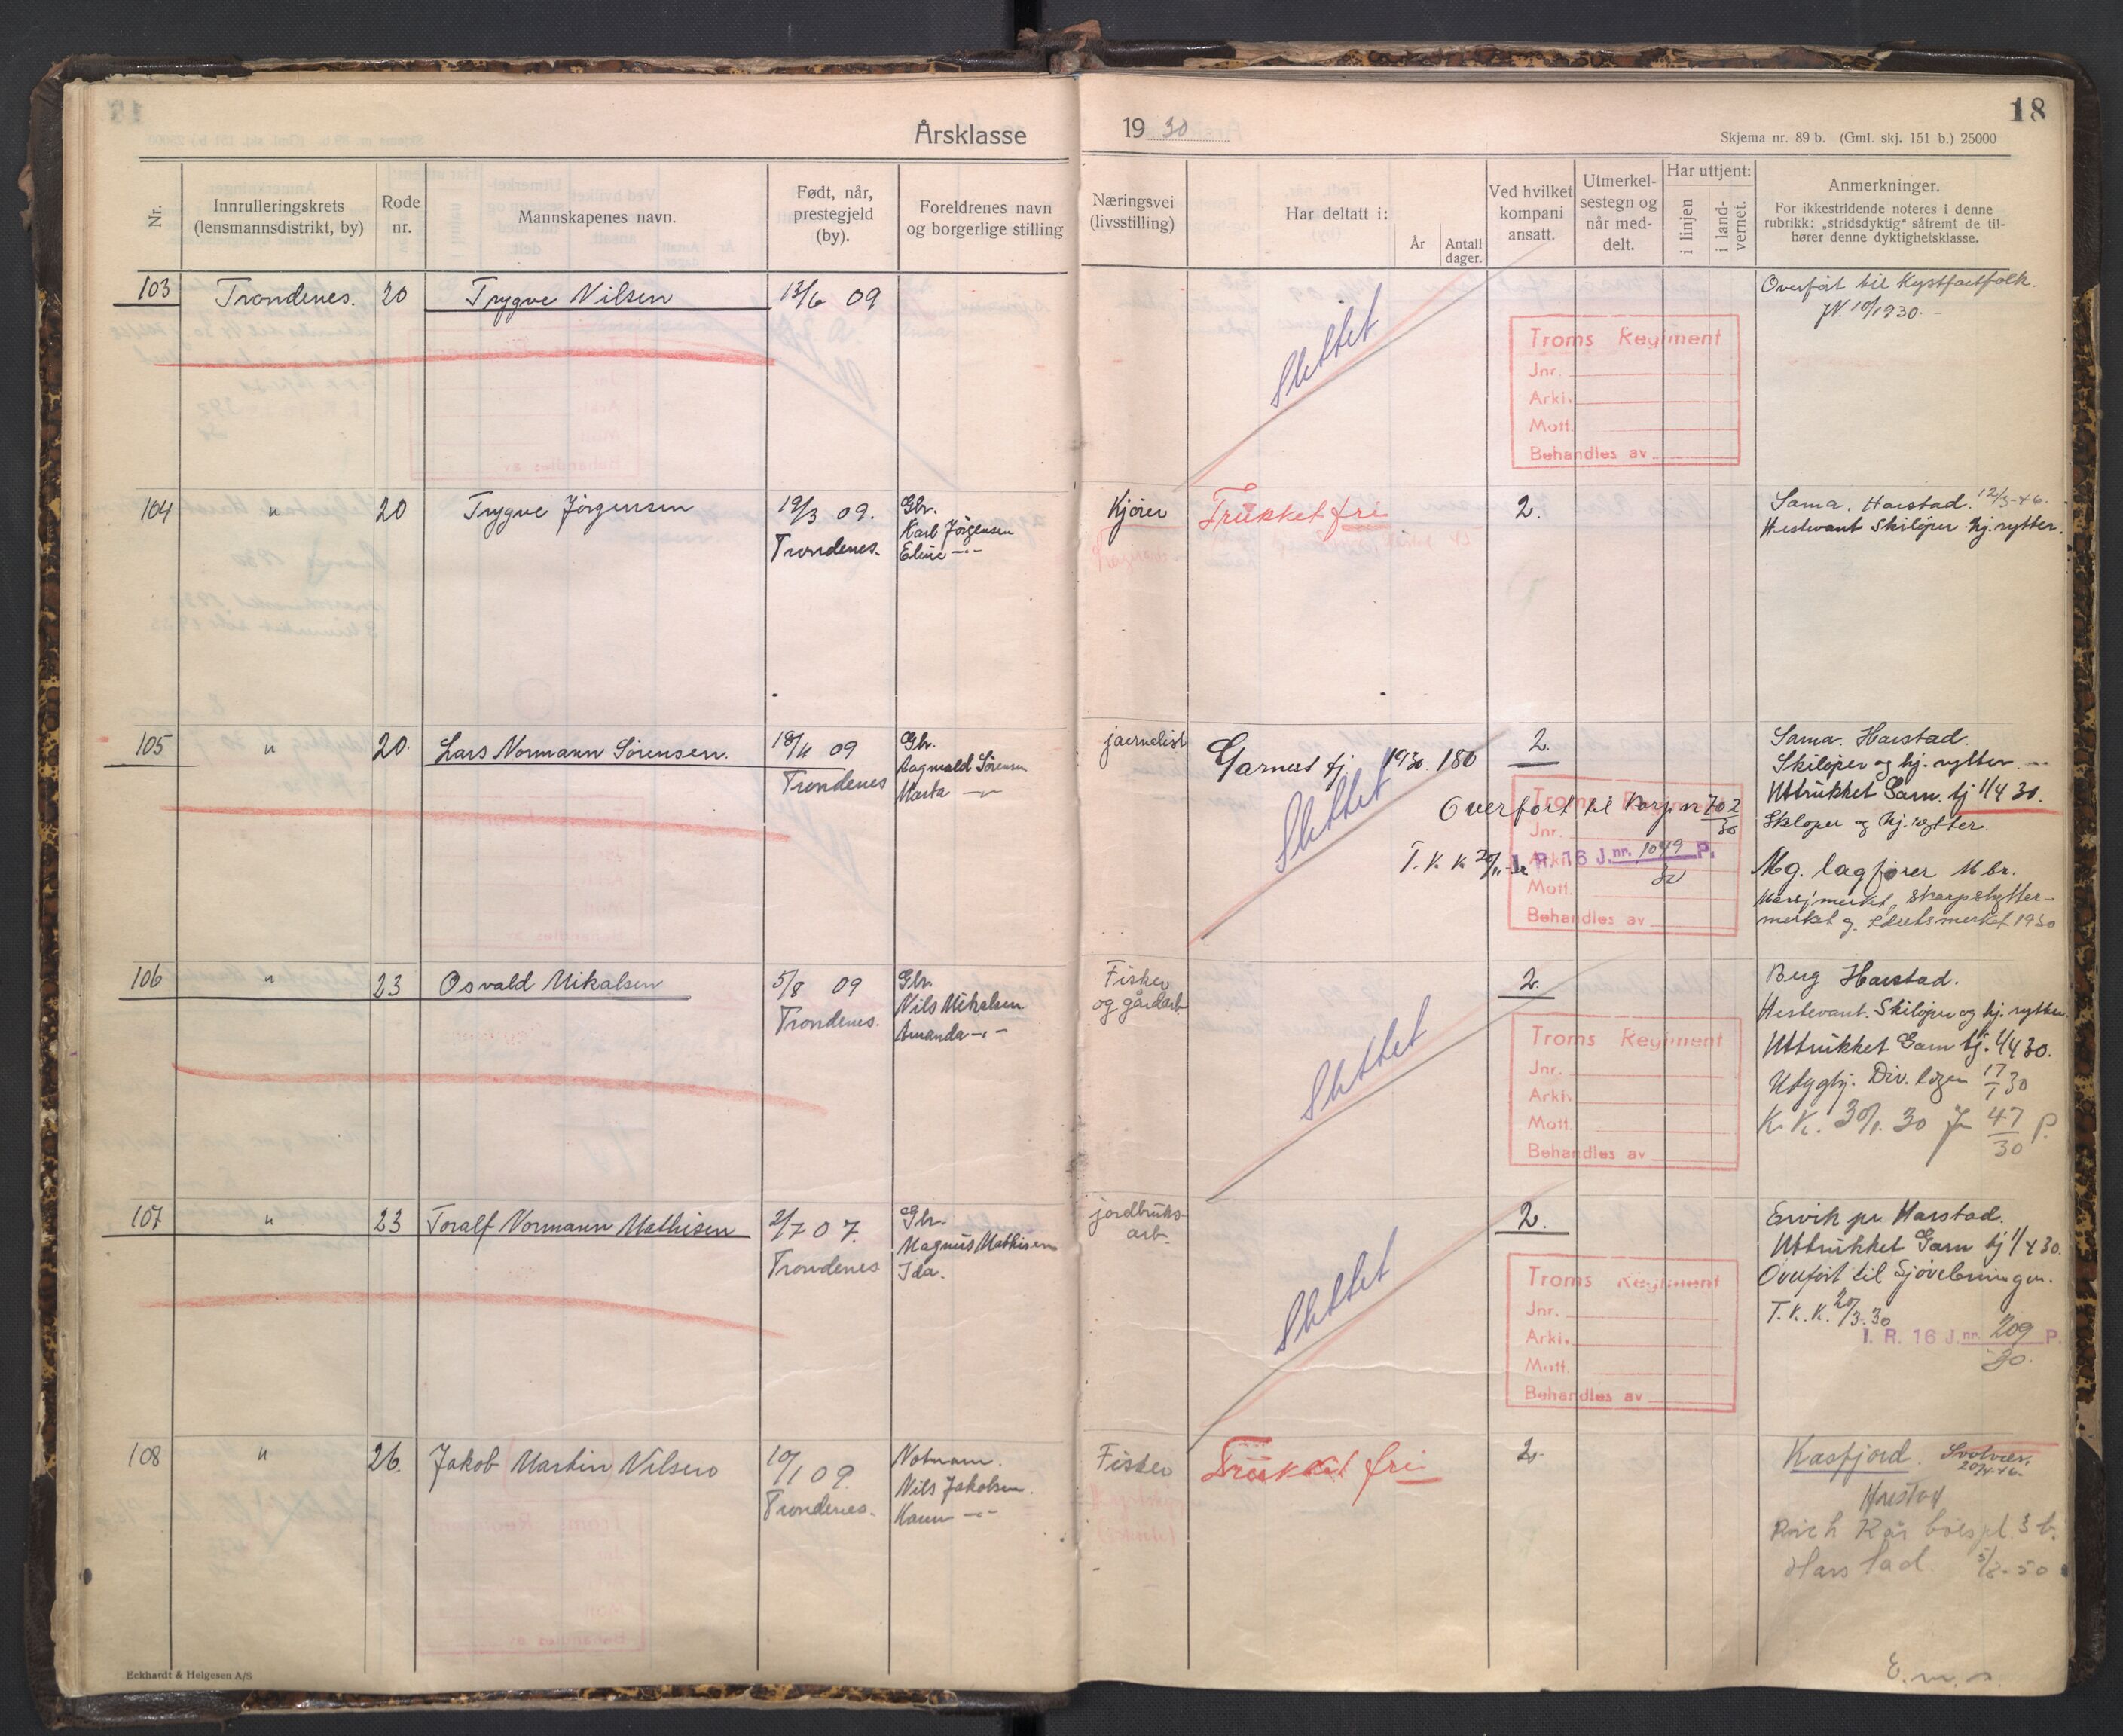 18
Årsklasse 19 30
Skjema nr. 89 b. (Gml. skj. 151 b.) 25000
Nr.
Innrulleringskrets
(lensmannsdistrikt, by)
Rode
nr.
Mannskapenes navn.
Født, når,
prestegjeld
(by).
Foreldrenes navn
og borgerlige stilling
Næringsvei
(livsstilling)
Har deltatt i:
År
Antall
dager.
Ved hvilket
kompani
ansatt.
Utmerkel-
sestegn og
når med-
delt.
Har uttjent:
i linjen
i land-
vernet.
Anmerkninger.
For ikkestridende noteres i denne
rubrikk: „stridsdyktig“ såfremt de til-
hører denne dyktighetsklasse.
103 Trondenes. 20 Trygve Nilsen 13/6 09
Slettet
Troms Regiment
Jnr.
Arkiv.
Mott.
Behandles av
Overført til Kystfortfolk.
10/1930.
104 " 20 Trygve Jörgensen 19/3 09.
Trondenes.
Gbr.
Karl Jörgensen
Eline -"-
Kjörer
Trukket fri
2.
Sama, Harstad. 12/3-46.
Hestevant Skilöper hj. rytter.
105 " 20. Lars Normann Sörensen. 18/11 09
Trondenes
Gbr.
Ragnvald Sörensen
Marta -"-
journalist
Garnest tj. 1930. 180
2.
Slettet
Overført til 702
30
T. K. K.
I. R. 16 J. nr. 1049 P.
30
Troms Regiment
Jnr.
Arkiv.
Mott.
Behandles av
Sama. Harstad.
Skilöper og hj. rytter.
Uttrukket Garn. tj 1/4 30.
Skilöper og hj. rytter.
Mg. lagfører M br.
Marsjmerket, skarpskytter-
merket og Idretsmerket 1930
106 " 23 Osvald Mikalsen 5/8 09
Trondenes.
Gbr.
Nils Mikalsen
Amanda -"-
Fisker
og gårdarb
2.
Slettet
Troms Regiment
Jnr.
Arkiv.
Mott.
Behandles av
Berg Harstad.
Hestevant. Skilöper og hj. rytter.
Uttrukket Garn tj. 1/4 30.
Udygtj. Div. legen 17/1 30
K. K. 30/1. 30 47 P.
30
107 " 23 Toralf Normann Mathisen 2/7 07.
Trondenes
Gbr.
Magnus Mathisen
Ida.
jordbruks-
arb.
2.
Slettet
Troms Regiment
Jnr.
Arkiv.
Mott.
Behandles av
Ervik pr. Harstad.
Uttrukket Garn tj 1/4 30.
Overført til Sjövebningen.
T. K. K. 20/3.30
I. R. 16 J. nr. 209 P.
30.
108 " 26. Jakob Martin Nilsen 10/1 09.
Trondenes.
Notmann.
Nils Jakobsen.
Fisker
Trukket fri
2.
Kasfjord. Svolvær.
Harstad
Rich Kår boespl. 3 b.
Harstad. 5/8-50
Eckhardt & Helgesen A/S